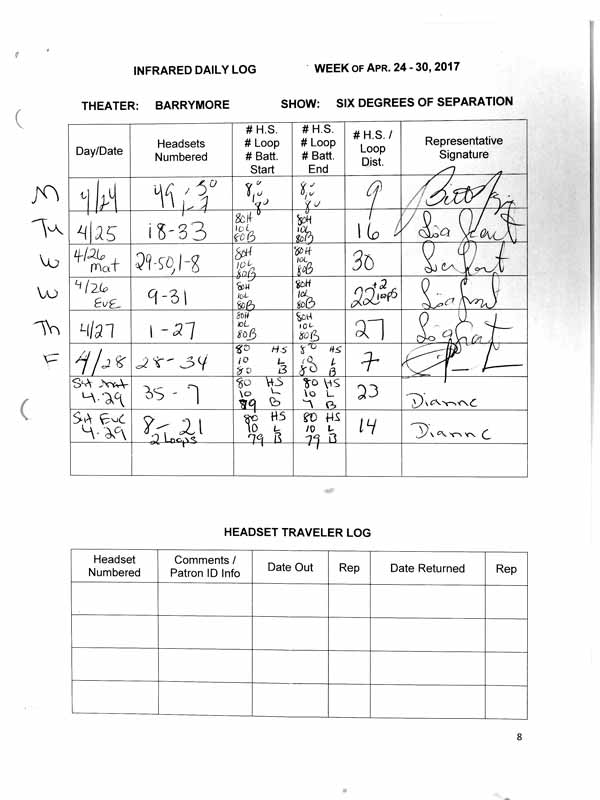 INFRARED DAILY LOG WEEK OF APR. 24 - 30, 2017
THEATER: BARRYMORE SHOW: SIX DEGREES OF SEPARATION
Day/Date Headsets Numbered # H.S. # Loop # Batt. Start # H.S. # Loop # Batt. End # H.S. / Loop Dist. Representative Signature
M 4/24 49, -50 1-7 80 80 80 80 9
Tu 4/25 18-33 80H 10L 80B 80H 10L 80B 16 Lisa
W 4/26 Mat 29-50, 1-8 80H 10L 80B 80H 10L 80B 30
W 4/26 Eve 9-31 80H 10L 80B 80H 10L 80B 22 +2 loops Lisa
Th 4/27 1-27 80H 10L 80B 80H 10L 80B 27
F 4/28 28-34 80 HS 10 L 80 B 80 HS 10 L 80 B 7
Sat Mat 4.29 35-7 80 HS 10 L B 80 HS 10 L B 23 Dianne
Sat Eve 4.29 8-21 2 Loops 80 HS 10 L 79 B 80 HS 10 L 79 B 14 Dianne
HEADSET TRAVELER LOG
Headset Numbered Comments / Patron ID Info Date Out Rep Date Returned Rep
8